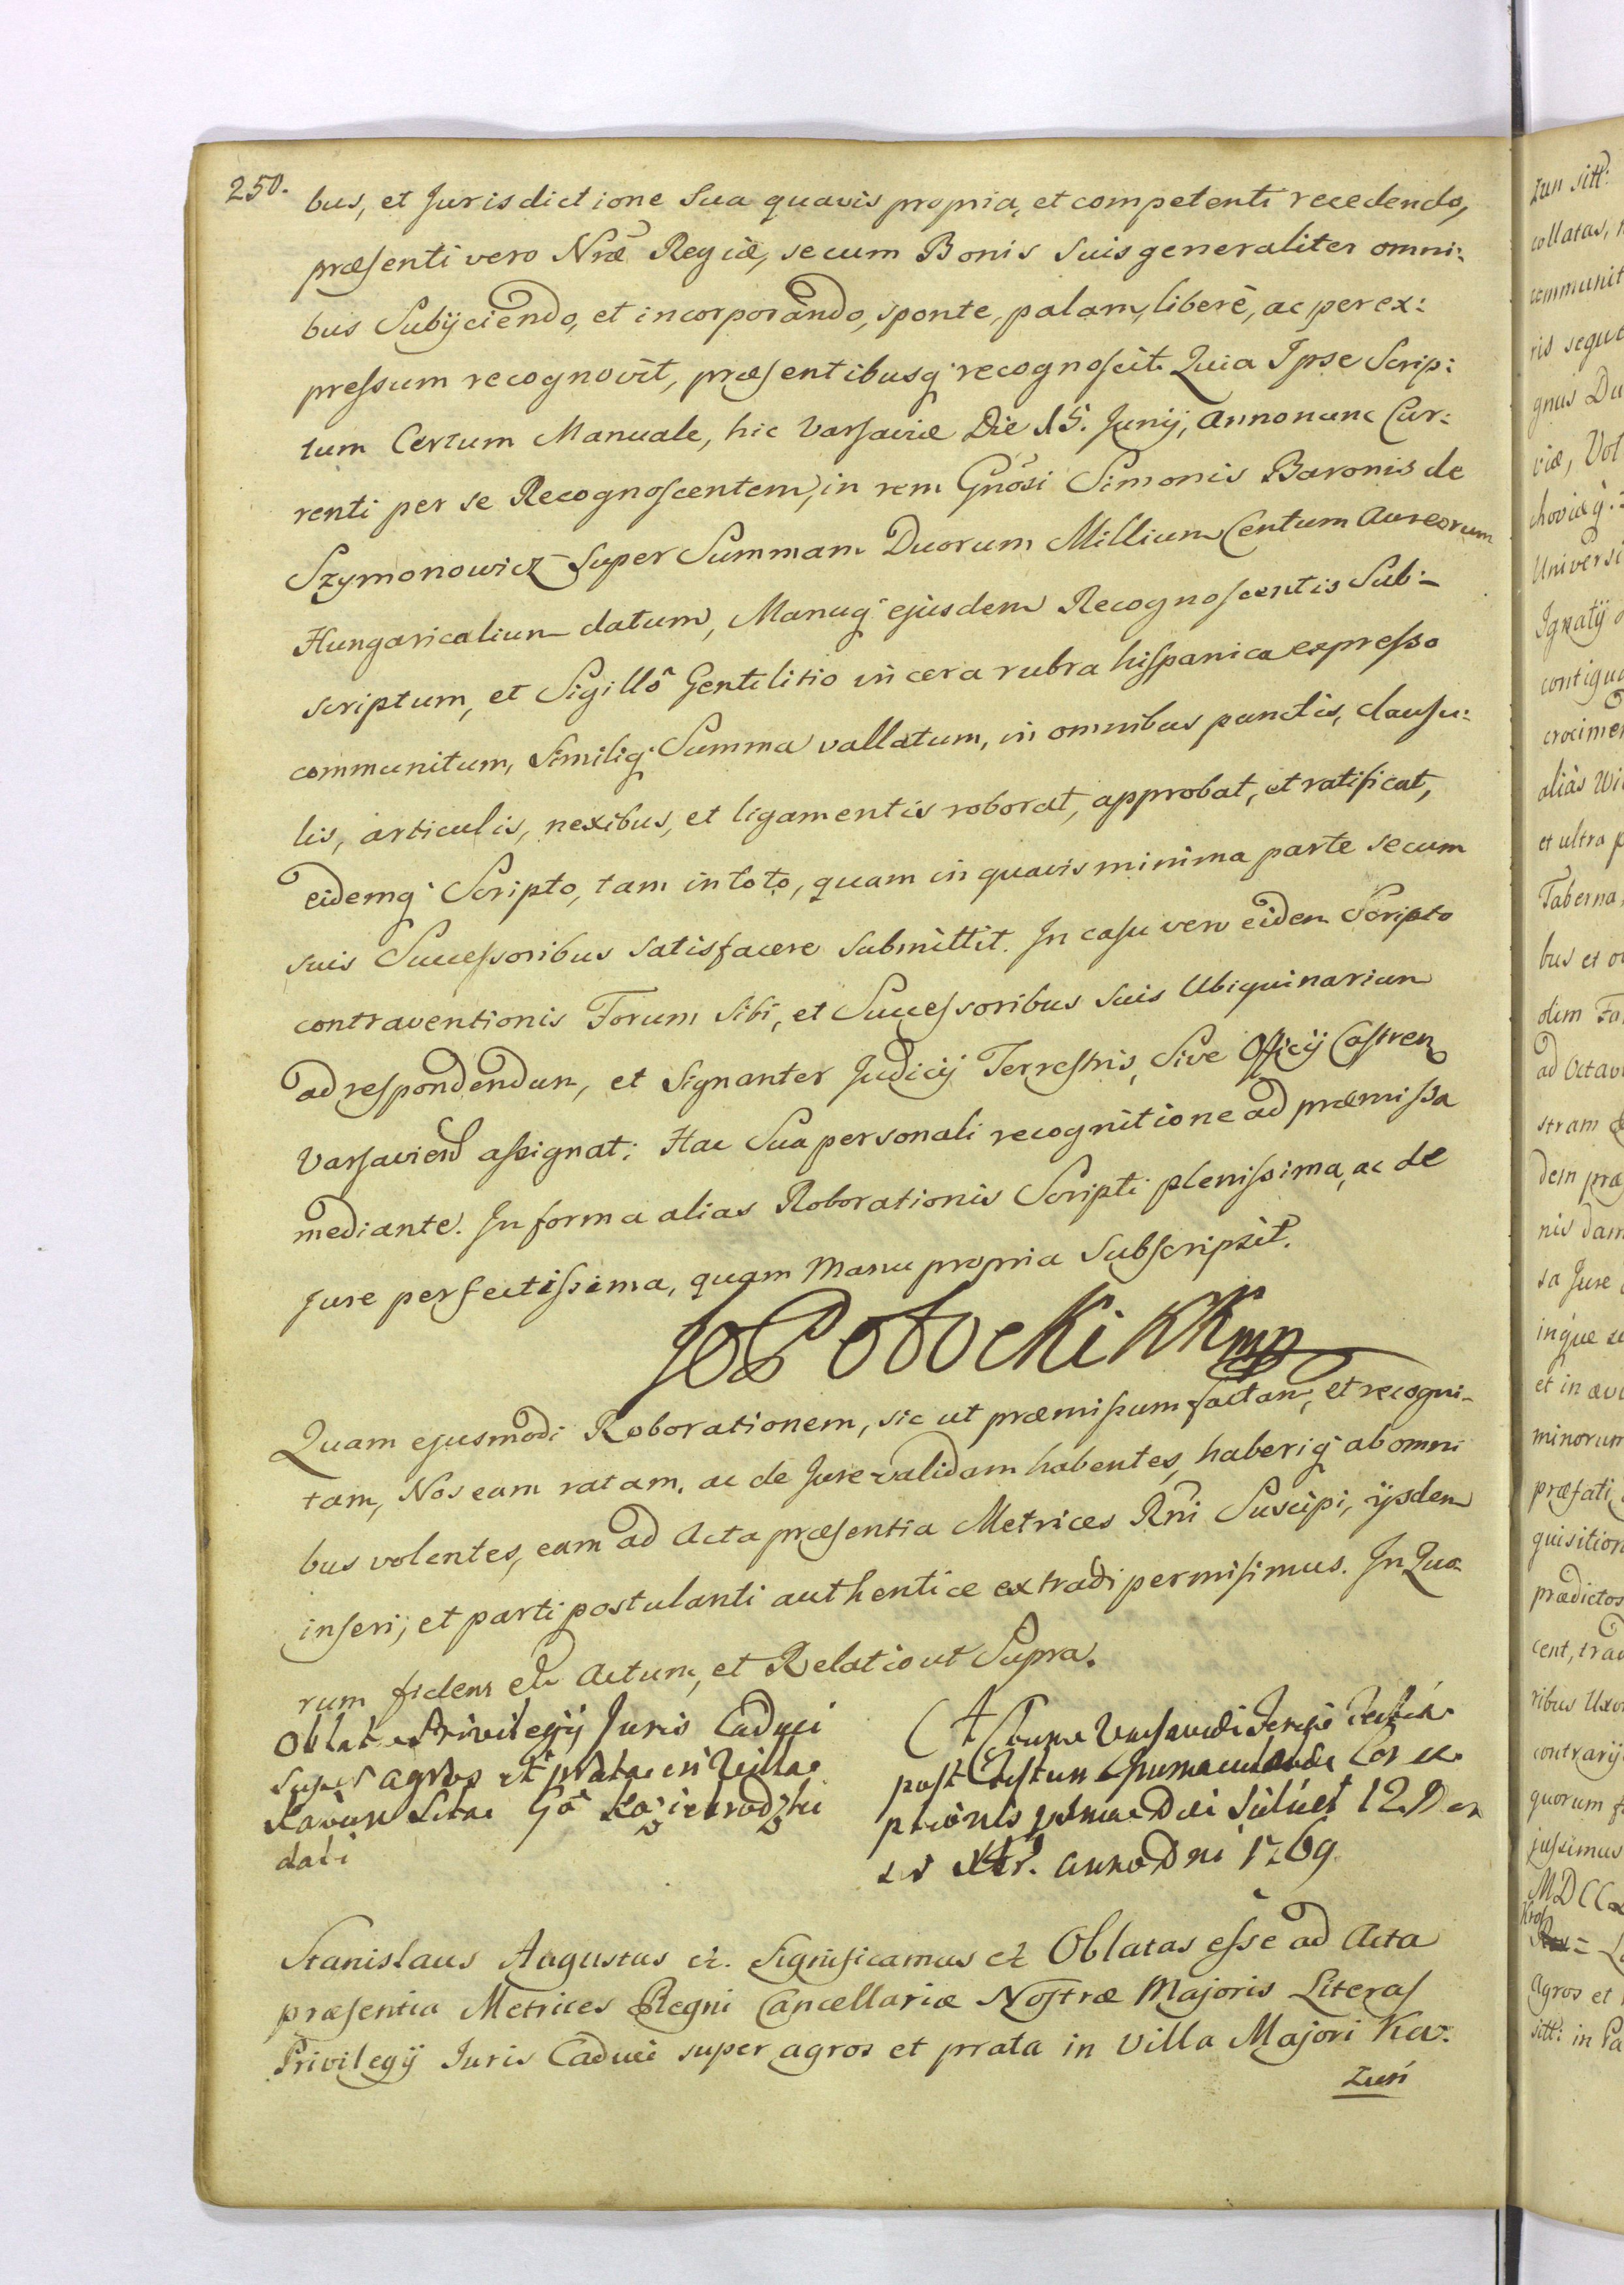 250.
bus, et Jurisdictione sua quavis propria, et competenti recedendo,
præsenti vero Nræ Regiæ, secum Bonis suis generaliter omni:
bus Subijciendo, et incorporando, sponte, palam, liberè, ac per ex:
pressum recognovit, præsentibusq recognoscit. Quia Ipse Scrip:
tum Certum Manuale, hic Varsaviæ Die 15. Junij, Anno nunc Cur:
renti per se Recognoscentem, in rem Gnosi Simonis Baronis de
Szymonowicz super Summam Duorum Millium Centum Aureorum
Hungaricalium datum, Manuq ejusdem Recognoscentis Sub:
scriptum, et Sigillô Gentilitio in cera rubra hispanica expresso
communitum, Similiq Summa vallatum, in omnibus punctis, clausu:
lis, articulis, nexibus, et ligamentis roborat, approbat, et ratificat,
eidemq Scripto, tam in toto, quam in quavis minima parte secum
suis Successoribus satisfacere submittit. In casu vero eidem Scripto
contraventionis Forum sibi, et Successoribus suis Ubiquinarium
ad respondendum, et signanter Judicij Terrestris, sive Officij Castren
Varsavien assignat; Hac Sua personali recognitione ad præmissa
mediante. In forma alias Roborationis Scripti plenissima, ac de
jure perfectissima, quam Manu propria Subscripsit.
Potocki KK mp
Quam ejusmodi Roborationem, sic ut præmissum factam, et recogni-
tam, Nos eam ratam, ac de Jure validam habentes, haberiq ab omni
bus volentes, eam ad Acta præsentia Metrices Rni Suscipi, ijsdem
inseri, et parti postulanti authentice extradi permisimus. In Quo
rum fidem etc Actum, et Relatio ut Supra.
Oblat Privilegij Juris Caduci
super agros et prata in Villa
dati
post Festum
12 D
Anno Dni 1769
Stanislaus Augustus etc. Significamus etc Oblatas esse ad Acta
præsentia Metrices Regni Cancellariæ Nostræ Majoris Literas
Privilegij Juris Caduci super agros et prata in Villa Majori Kav:
zun
zun sitt:
collatas,
ris sequt
gnus Du
viæ,
Universi
Ignatij
contigu
alias Wi
et ultra p
Taberna,
bus et o
olim
ad Octav
stram
dem præ
nis dam
sa Jure
inque se
et in
minorum
præfati
quisition
prædictos
cent, trad
ribus Uxor
contrarij
quorum f
jussimus
MDCC
Agros et
sitt: in Pa